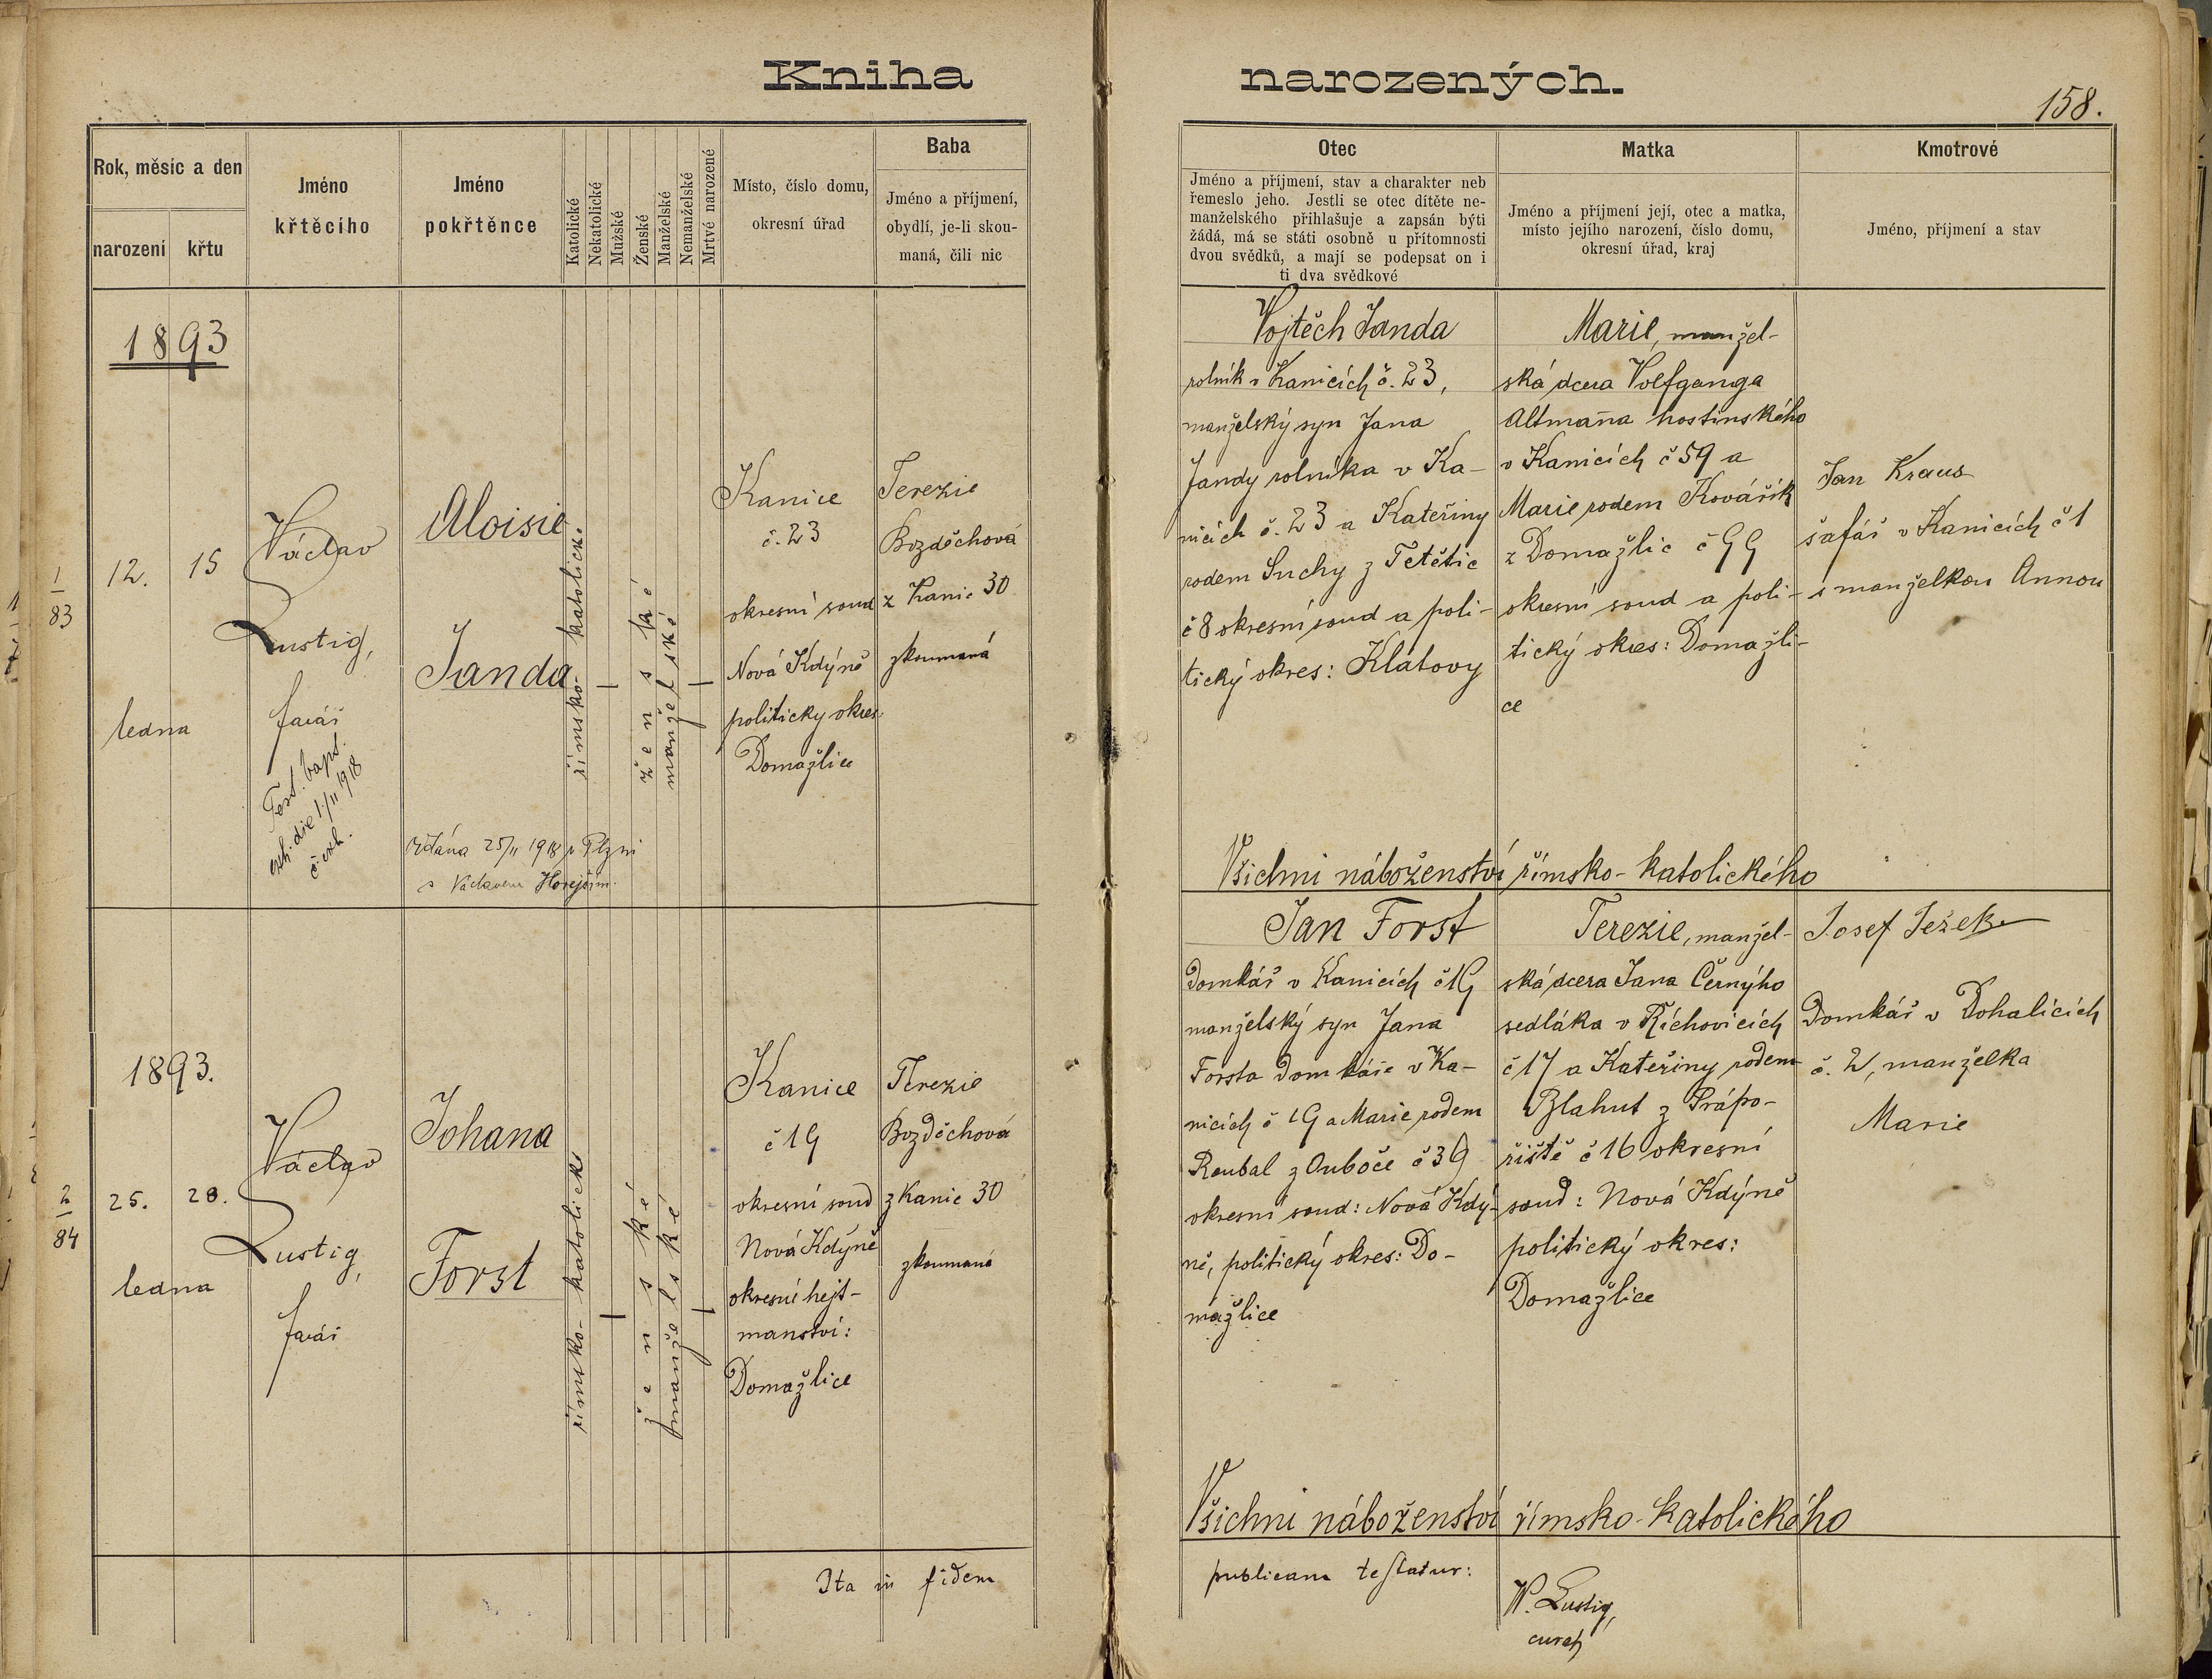 Kniha narozených.
158.
Rok, měsíc a den
narození
křtu
Jméno
křtěcího
Jméno
pokřtěnce
Katolické
Nekatolické
Mužské
Ženské
Manželské
Nemanželské
Mrtvé narozené
Místo, číslo domu,
okresní úřad
Baba
Jméno a příjmení,
obydlí, je-li skou-
maná, čili nic
Otec
Jméno a příjmení, stav a charakter neb
řemeslo jeho. Jestli se otec dítěte ne-
manželského přihlašuje a zapsán býti
žádá, má se státi osobně u přítomnosti
dvou svědků, a mají se podepsat on i
ti dva svědkové
Matka
Jméno a příjmení její, otec a matka,
místo jejího narození, číslo domu,
okresní úřad, kraj
Kmotrové
Jméno, příjmení a stav
1893
1
83
12. 15
ledna
Václav
Lustig,
farář
Test. bapt.
exh. die 1/II 1918
č. exh.
Aloisie
Janda
Oddána 25/II 1918 v Plzni
s Václavem Horejším.
římsko-katolické
ženské
manželské
Kanice
č. 23
okresní soud
Nová Kdýně
politický okres
Domažlice
Terezie
Bozděchová
z Kanic 30
zkoumaná
Vojtěch Janda
rolník v Kanicích č. 23,
manželský syn Jana
Jandy rolníka v Ka-
nicích č. 23 a Kateřiny
rodem Suchy z Tetětic
č 8 okresní soud a poli-
tický okres: Klatovy
Marie, manžel-
ská dcera Volfganga
Altmana hostinského
v Kanicích č 59 a
Marie rodem Kovářík
z Domažlic č 99
okresní soud a poli-
tický okres: Domažli-
ce
Jan Kraus
šafář v Kanicích č 1
s manželkou Annou
Všichni náboženství římsko-katolického
1893.
2
84
25. 28.
ledna
Václav
Lustig,
farář
Johana
Forst
římsko-katolické
ženské
manželské
Kanice
č 19
okresní soud
Nová Kdýně
okresní hejt-
manství:
Domažlice
Terezie
Bozděchová
z Kanic 30
zkoumaná
Jan Forst
domkář v Kanicích č 19
manželský syn Jana
Forsta domkáře v Ka-
nicích č 19 a Marie rodem
Roubal z Ouboče č 39
okresní soud: Nová Kdý-
ně, politický okres: Do-
mažlice
Terezie, manžel-
ská dcera Jana Černýho
sedláka v Říchovicích
č 17 a Kateřiny rodem
Blahut z Prápo-
řiště č 16 okresní
soud: Nová Kdýně
politický okres:
Domažlice
Josef Ježek
Domkář v Dohalicích
č. 2, manželka
Marie
Všichni náboženství římsko-katolického
Ita in fidem publicam testatur:
W. Lustig,